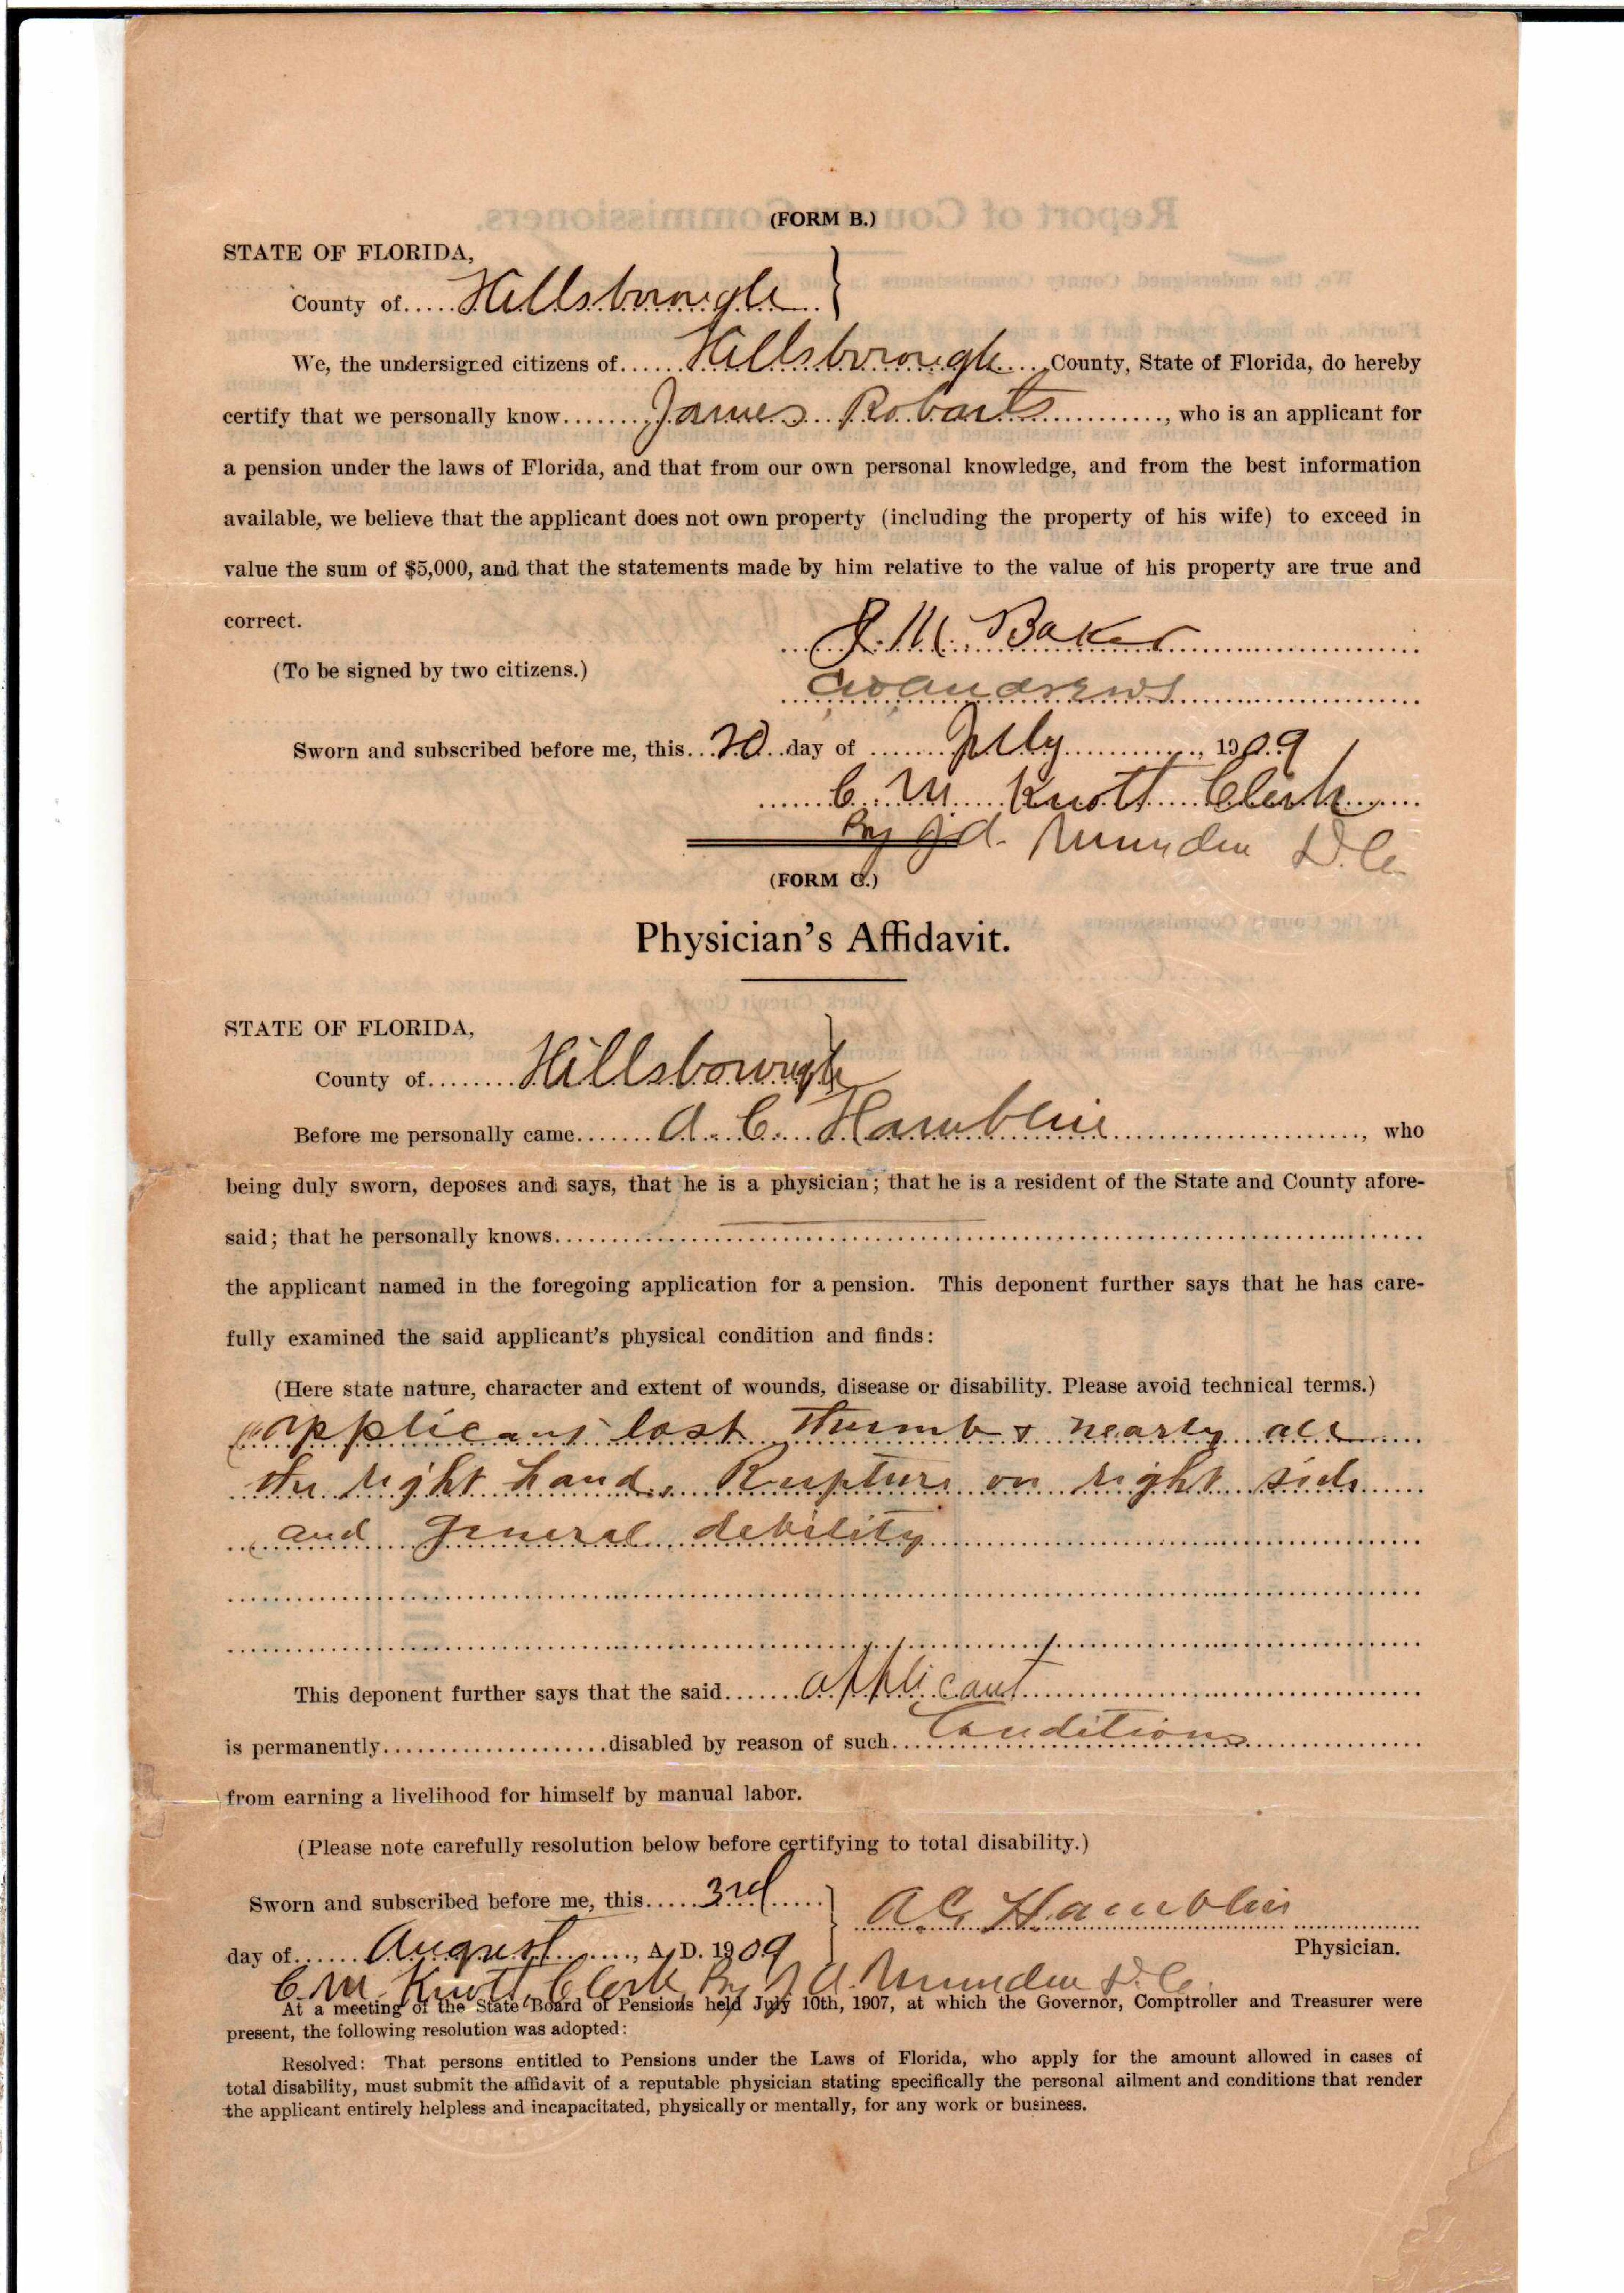 (FORM B.)
STATE OF FLORIDA,
County of Hillsborough }
We, the undersigned citizens of Hillsborough County, State of Florida, do hereby
certify that we personally know James Robarts, who is an applicant for
a pension under the laws of Florida, and that from our own personal knowledge, and from the best information
available, we believe that the applicant does not own property (including the property of his wife) to exceed in
value the sum of $5,000, and that the statements made by him relative to the value of his property are true and
correct.
J. M. Baker
(To be signed by two citizens.)
Andrews
Sworn and subscribed before me, this 20 day of July, 1909
C. M. Knott Clerk
By Munden D.C.
(FORM C.)
Physician's Affidavit.
STATE OF FLORIDA,
County of Hillsborough
Before me personally came A. C. Hamblin, who
being duly sworn, deposes and says, that he is a physician; that he is a resident of the State and County afore-
said; that he personally knows
the applicant named in the foregoing application for a pension. This deponent further says that he has care-
fully examined the said applicant's physical condition and finds:
(Here state nature, character and extent of wounds, disease or disability. Please avoid technical terms.)
applicant lost thumb & nearly all
the right hand, Rupture on right side
and general debility
This deponent further says that the said applicant
is permanently disabled by reason of such Conditions
from earning a livelihood for himself by manual labor.
(Please note carefully resolution below before certifying to total disability.)
Sworn and subscribed before me, this 3rd }
A C Hamblin
day of August, A. D. 1909
Physician.
C. M. Knott, Clerk, By Munden D.C.
At a meeting of the State Board of Pensions held July 10th, 1907, at which the Governor, Comptroller and Treasurer were
present, the following resolution was adopted:
Resolved: That persons entitled to Pensions under the Laws of Florida, who apply for the amount allowed in cases of
total disability, must submit the affidavit of a reputable physician stating specifically the personal ailment and conditions that render
the applicant entirely helpless and incapacitated, physically or mentally, for any work or business.